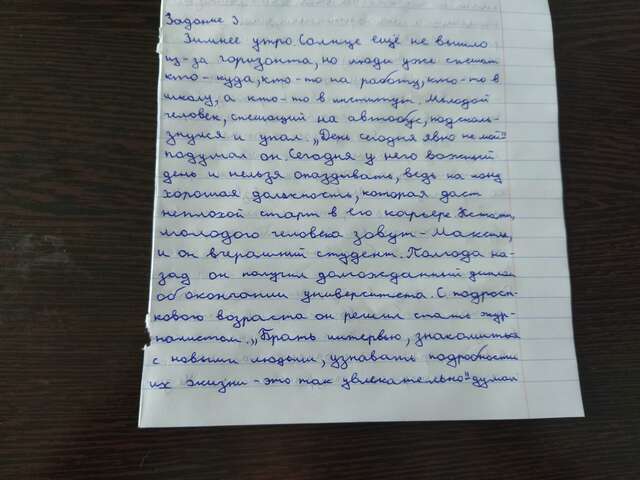 Задание 3.
Зимнее утро. Солнце ещё не вышло
из-за горизонта, но люди уже спешат
кто-куда, кто-то на работу, кто-то в
школу, а кто-то в институт. Молодой
человек, спешащий на автобус, подсколь-
знулся и упал. „День сегодня явно не мой"
подумал он. Сегодня у него важный
день и нельзя опаздывать, ведь на кону
хорошая должность, которая даст
неплохой старт в его карьере. Кстати,
молодого человека зовут - Максим,
и он вчерашний студент. Полгода на-
зад он получил долгожданный диплом
об окончании университета. С подрост-
кового возраста он решил стать жур-
налистом. „Брать интервью, знакомиться
с новыми людьми, узнавать подробности
их жизни - это так увлекательно" думал